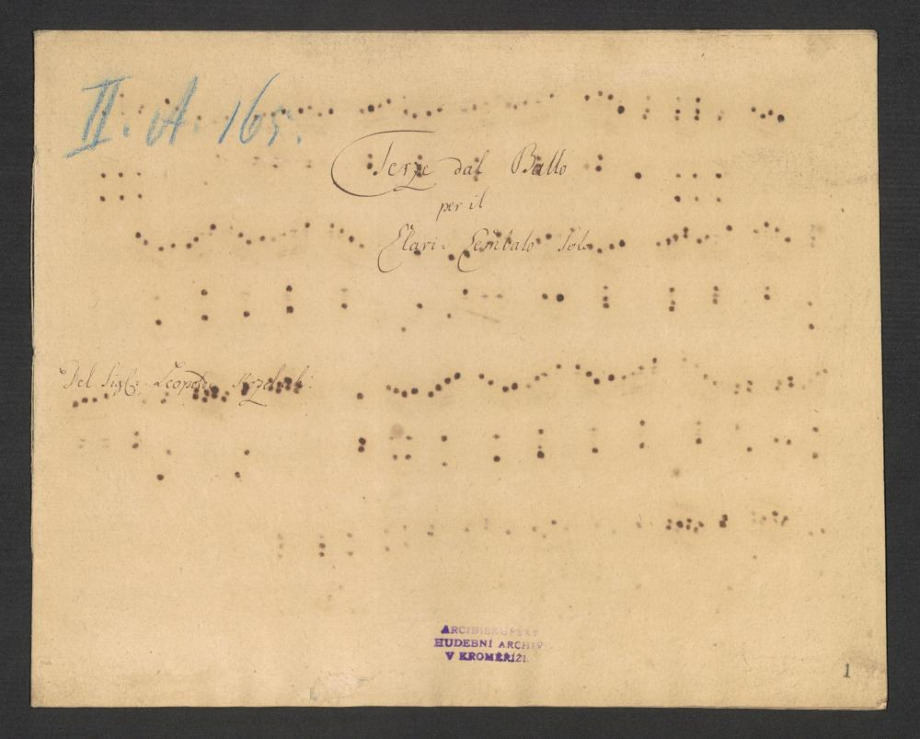 II. A. 165.
Terze dal Ballo
per il
Clari Cembalo Solo
Del Sigl: Leopold Kozeluch:
ARCIBISKUPSKÝ
HUDEBNÍ ARCHIV
V KROMĚŘÍŽI.
1